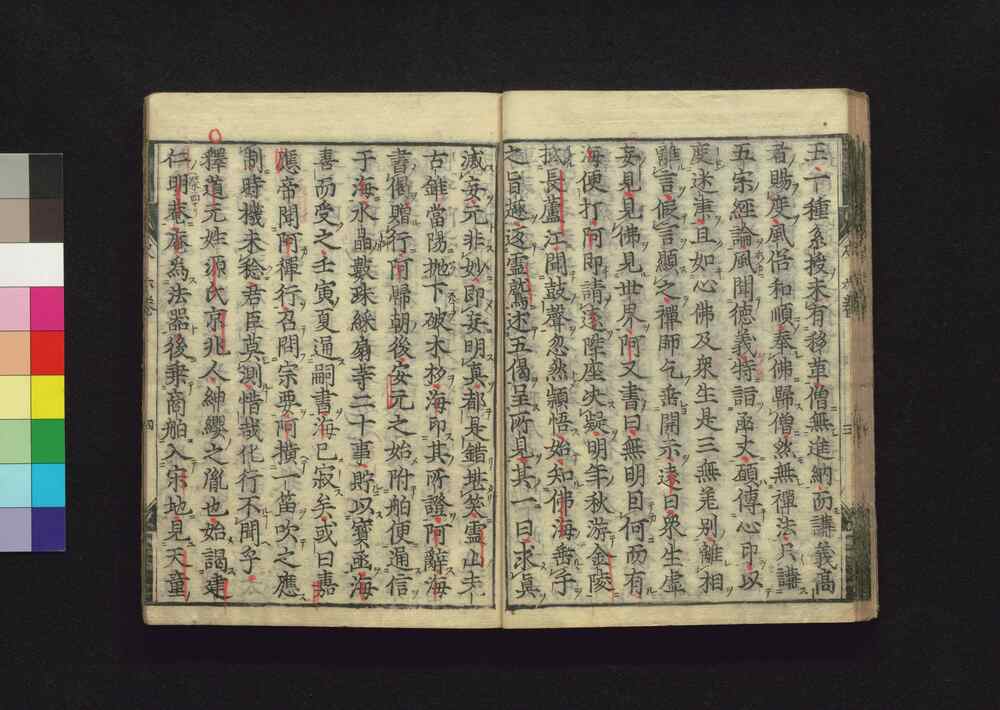 王一種系授未有移革僧無進納而講義高
者賜度風俗和順奉佛歸僧然無禪法只講
五宗經論風聞德義特詣函丈願傳心印以
度迷津且如心佛及衆生是三無差別離相
離言假言顯之禪師乞垂開示遠曰衆生虛
妄見見佛見世界阿又書曰無明因何而有
海便打阿即請遠陞座決疑明年秋游金陵
抵長蘆江聞鼓聲忽然頓悟始知佛海垂手
之旨遂返靈鷲述五偈呈所見其一曰求眞
滅妄元非妙即妄明眞都是錯堪笑靈山未
古錐當陽抛下破木杓海印其所證阿辭海
書偈贈行阿歸朝後安元之始附舶便通信
于海水晶數珠綵扇等二十事貯以寶函海
喜而受之壬寅夏通嗣書海已寂矣或曰嘉
應帝聞阿禪行召問宗要阿横一笛吹之應
制時機未稔君臣莫測惜哉化行不聞乎
釋道元姓源氏京兆人紳纓之胤也始謁建
仁明菴庵爲法器後乗商舶入宋地見天童